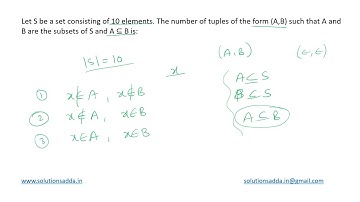 Let S be a set consisting of 10 elements. The number of tuples of the form (A,B) such that A and
B are the subsets of S and A ⊆ B is:
|S| = 10
(A, B) (∈, ∈)
x
A ⊆ S
① x ∉ A , x ∉ B
B ⊆ S
② x ∉ A , x ∈ B
A ⊆ B
③ x ∈ A , x ∈ B
www.solutionsadda.in solutionsadda.in@gmail.com